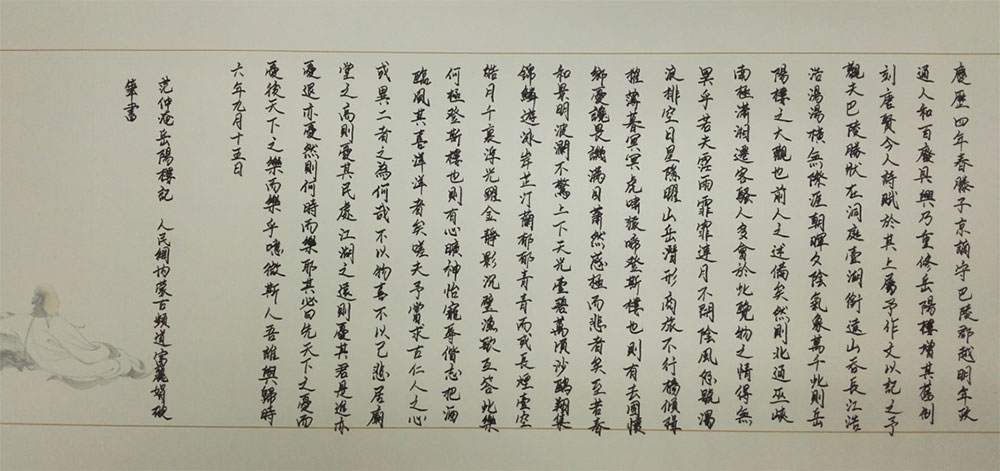 慶歷四年春滕子京謫守巴陵郡越明年政
通人和百廢具興乃重修岳陽樓增其舊制
刻唐賢今人詩賦於其上屬予作文以記之予
觀夫巴陵勝狀在洞庭壹湖銜遠山吞長江浩
浩湯湯橫無際涯朝暉夕陰氣象萬千此則岳
陽樓之大觀也前人之述備矣然則北通巫峽
南極瀟湘遷客騷人多會於此覽物之情得無
異乎若夫霪雨霏霏連月不開陰風怒號濁
浪排空日星隱曜山岳潛形商旅不行檣傾楫
摧薄暮冥冥虎嘯猿啼登斯樓也則有去國懷
鄉憂讒畏譏滿目蕭然感極而悲者矣至若春
和景明波瀾不驚上下天光壹碧萬頃沙鷗翔集
錦鱗遊泳岸芷汀蘭郁郁青青而或長煙壹空
皓月千裏浮光躍金靜影沉璧漁歌互答此樂
何極登斯樓也則有心曠神怡寵辱偕忘把酒
臨風其喜洋洋者矣嗟夫予嘗求古仁人之心
或異二者之為何哉不以物喜不以己悲居廟
堂之高則憂其民處江湖之遠則憂其君是進亦
憂退亦憂然則何時而樂耶其必曰先天下之憂而
憂後天下之樂而樂乎噫微斯人吾誰與歸時
六年九月十五日
范仲淹岳陽樓記 人民網內蒙古頻道富麗娟硬
筆書